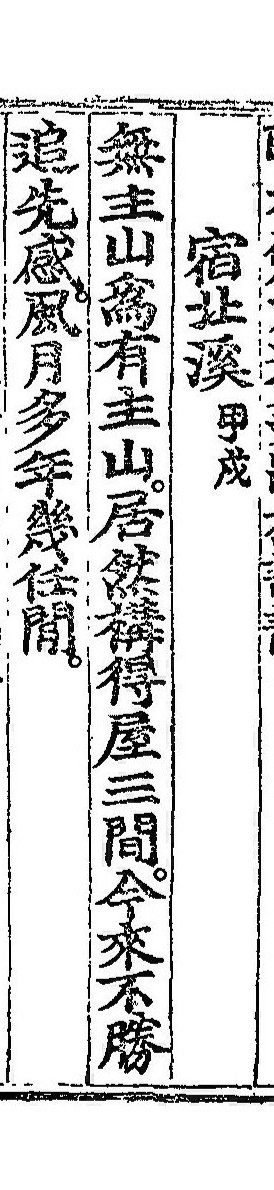 宿北溪 甲戌
無主山爲有主山。居然構得屋三間。今來不勝
追先感。風月多年幾任間。